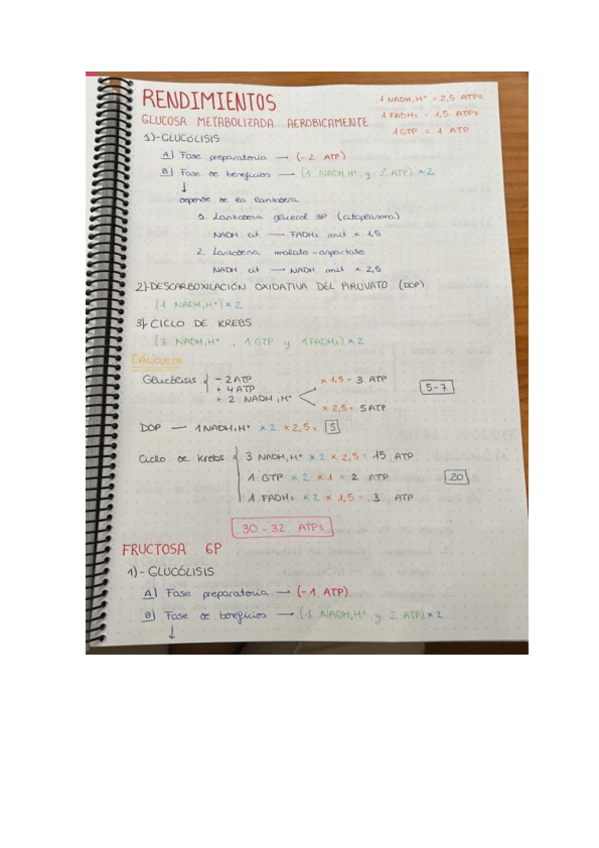 RENDIMIENTOS
1 NADH,H⁺ = 2,5 ATPs
1 FADH₂ = 1,5 ATPs
1 GTP = 1 ATP
GLUCOSA METABOLIZADA AEROBICAMENTE
1)-GLUCÓLISIS
A) Fase preparatoria → (-2 ATP)
B) Fase de beneficios → (1 NADH,H⁺ y 2 ATP) × 2
↓
depende de la lanzadera
1. Lanzadera glicerol 3P (citoplasma)
NADH cit → FADH₂ mit × 1,5
2. Lanzadera malato-aspartato
NADH cit → NADH mit × 2,5
2)-DESCARBOXILACIÓN OXIDATIVA DEL PIRUVATO (DOP)
(1 NADH,H⁺) × 2
3)-CICLO DE KREBS
(3 NADH,H⁺, 1 GTP y 1 FADH₂) × 2
CÁLCULOS
Glucólisis - 2 ATP
+ 4 ATP
+ 2 NADH,H⁺
× 1,5 = 3 ATP
× 2,5 = 5 ATP
5-7
DOP — 1 NADH,H⁺ × 2 × 2,5 = 5
Ciclo de Krebs 3 NADH,H⁺ × 2 × 2,5 = 15 ATP
1 GTP × 2 × 1 = 2 ATP
20
1 FADH₂ × 2 × 1,5 = 3 ATP
30-32 ATPs
FRUCTOSA 6P
1)-GLUCÓLISIS
A) Fase preparatoria → (-1 ATP)
B) Fase de beneficios → (1 NADH,H⁺ y 2 ATP) × 2
↓